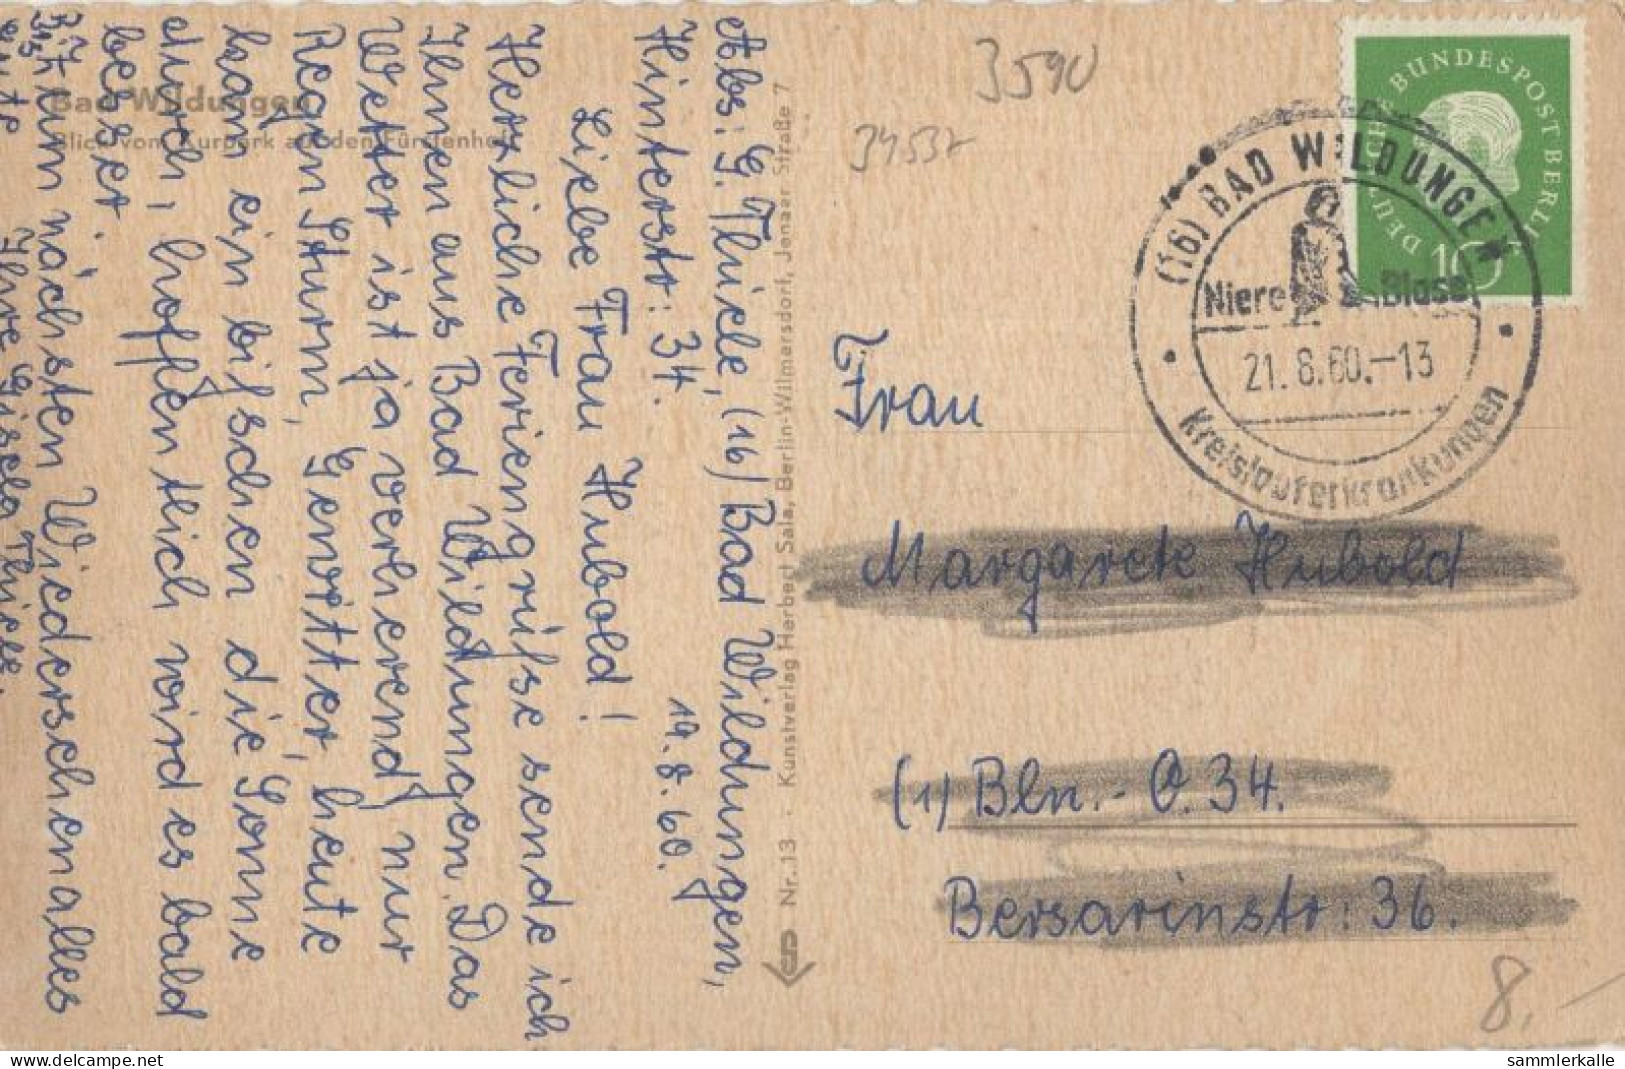 Abs: G. Thiele, (16) Bad Wildungen,
Hinterstr: 34.
19.8.60.
Liebe Frau Hubold!
Herzliche Feriengrüsse sende ich
Ihnen aus Bad Wildungen. Das
Wetter ist ja verheerend, nur
Regen, Sturm, Gewitter, heute
kam ein bißchen die Sonne
durch, hoffentlich wird es bald
besser.
Bis zum nächsten Wiedersehen alles
Gute Ihre Gisela Thiele.
Bad Wildungen
Blick vom Kurpark auf den Fürstenhof
Nr. 13 · Kunstverlag Herbert Sala, Berlin-Wilmersdorf, Jenaer Straße 7
3590
34537
DEUTSCHE BUNDESPOST BERLIN
10
(16) BAD WILDUNGEN
Niere Blase
21.8.60.-13
Kreislauferkrankungen
Frau
Margarete Hubold
(1) Bln.- O. 34.
Bersarinstr: 36.
8,-
www.delcampe.net
sammlerkalle